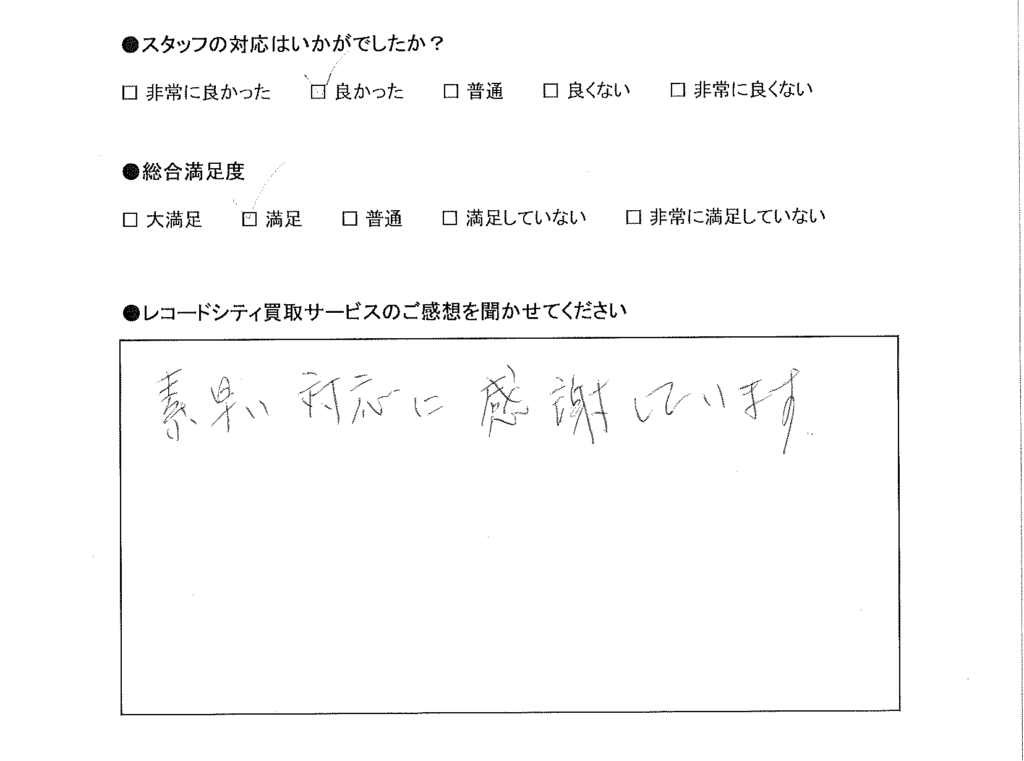 ●スタッフの対応はいかがでしたか？
□ 非常に良かった □ 良かった □ 普通 □ 良くない □ 非常に良くない
●総合満足度
□ 大満足 □ 満足 □ 普通 □ 満足していない □ 非常に満足していない
●レコードシティ買取サービスのご感想を聞かせてください
素早い対応に感謝しています